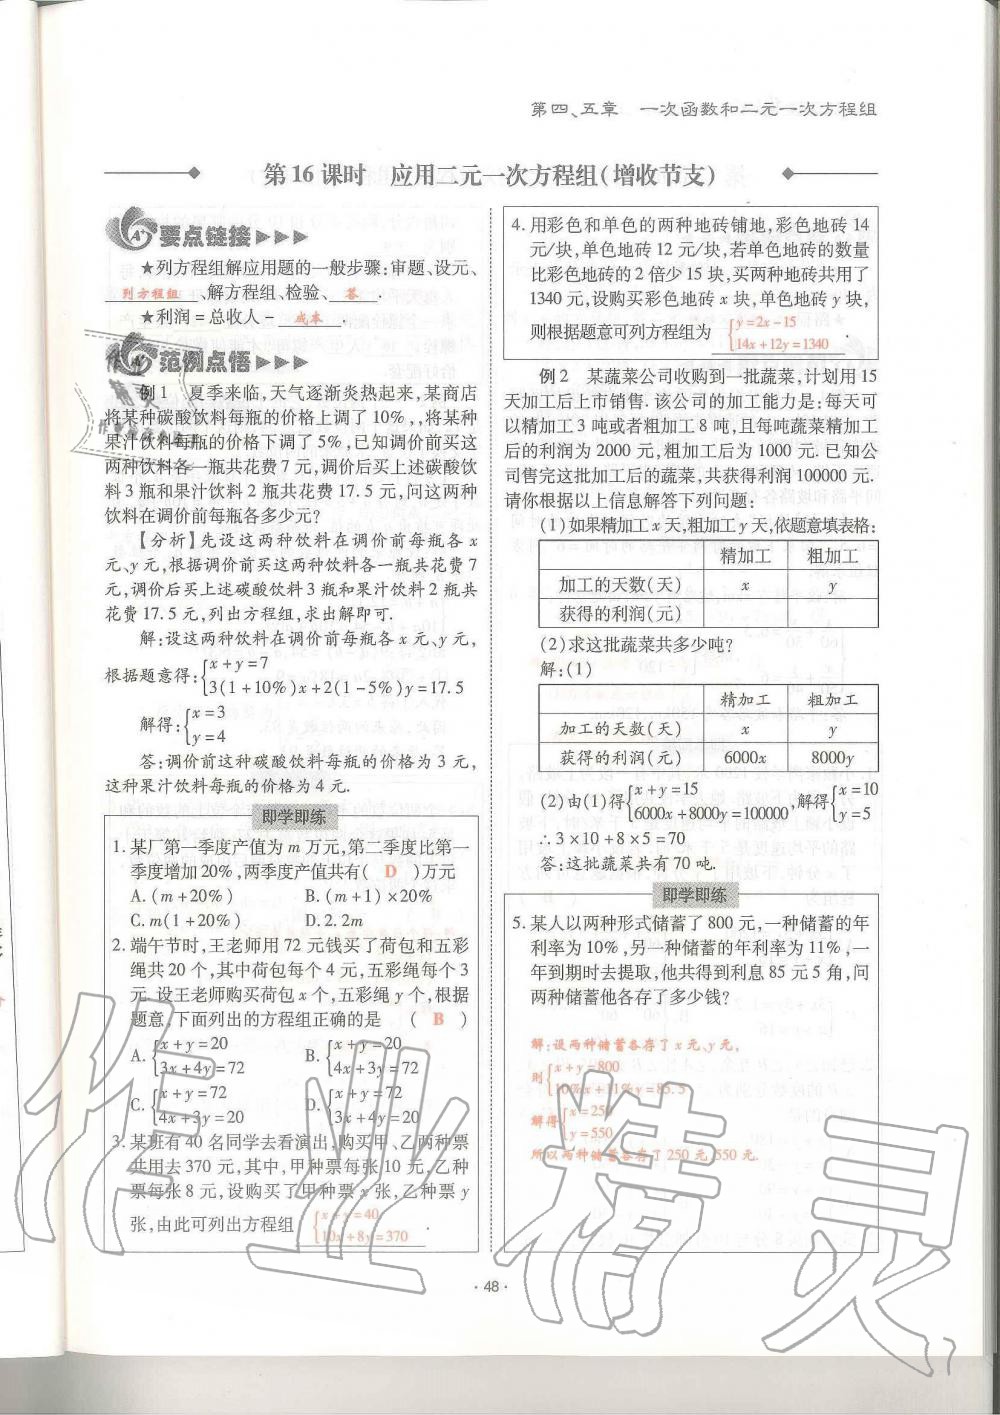 第四、五章 一次函数和二元一次方程组
第16课时 应用二元一次方程组(增收节支)
要点链接
★列方程组解应用题的一般步骤:审题、设元、
列方程组、解方程组、检验、答.
★利润=总收入-成本.
范例点悟
例1 夏季来临,天气逐渐炎热起来,某商店
将某种碳酸饮料每瓶的价格上调了10%,,将某种
果汁饮料每瓶的价格下调了5%,已知调价前买这
两种饮料各一瓶共花费7元,调价后买上述碳酸饮
料3瓶和果汁饮料2瓶共花费17.5元,问这两种
饮料在调价前每瓶各多少元?
【分析】先设这两种饮料在调价前每瓶各x
元、y元,根据调价前买这两种饮料各一瓶共花费7
元,调价后买上述碳酸饮料3瓶和果汁饮料2瓶共
花费17.5元,列出方程组,求出解即可.
解:设这两种饮料在调价前每瓶各x元、y元,
根据题意得:{x+y=7
3(1+10%)x+2(1-5%)y=17.5
解得:{x=3
y=4
答:调价前这种碳酸饮料每瓶的价格为3元,
这种果汁饮料每瓶的价格为4元.
即学即练
1.某厂第一季度产值为m万元,第二季度比第一
季度增加20%,两季度产值共有( D )万元
A.(m+20%) B.(m+1)×20%
C.m(1+20%) D.2.2m
2.端午节时,王老师用72元钱买了荷包和五彩
绳共20个,其中荷包每个4元,五彩绳每个3
元.设王老师购买荷包x个,五彩绳y个,根据
题意,下面列出的方程组正确的是 ( B )
A.{x+y=20 B.{x+y=20
3x+4y=72 4x+3y=72
C.{x+y=72 D.{x+y=72
4x+3y=20 3x+4y=20
3.某班有40名同学去看演出,购买甲、乙两种票
共用去370元,其中,甲种票每张10元,乙种
票每张8元,设购买了甲种票x张,乙种票y
张,由此可列出方程组 {x+y=40
10x+8y=370 .
4.用彩色和单色的两种地砖铺地,彩色地砖14
元/块,单色地砖12元/块,若单色地砖的数量
比彩色地砖的2倍少15块,买两种地砖共用了
1340元,设购买彩色地砖x块,单色地砖y块,
则根据题意可列方程组为 {y=2x-15
14x+12y=1340
例2 某蔬菜公司收购到一批蔬菜,计划用15
天加工后上市销售.该公司的加工能力是:每天可
以精加工3吨或者粗加工8吨,且每吨蔬菜精加工
后的利润为2000元,粗加工后为1000元.已知公
司售完这批加工后的蔬菜,共获得利润100000元.
请你根据以上信息解答下列问题:
(1)如果精加工x天,粗加工y天,依题意填表格:
精加工 粗加工
加工的天数(天) x y
获得的利润(元)
(2)求这批蔬菜共多少吨?
解:(1)
精加工 粗加工
加工的天数(天) x y
获得的利润(元) 6000x 8000y
(2)由(1)得{x+y=15
6000x+8000y=100000,解得{x=10
y=5
∴3×10+8×5=70
答:这批蔬菜共有70吨.
即学即练
5.某人以两种形式储蓄了800元,一种储蓄的年
利率为10%,另一种储蓄的年利率为11%,一
年到期时去提取,他共得到利息85元5角,问
两种储蓄他各存了多少钱?
解:设两种储蓄各存了x元、y元,
则{x+y=800
10%x+11%y=85.5
解得{x=250
y=550
所以两种储蓄各存了250元,550元.
·48·
作业精灵